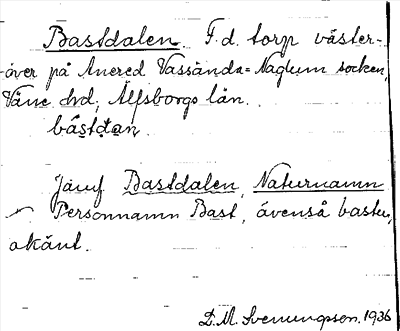 Bastdalen. F.d. torp väster-
över på Anered Vassända-Naglum socken,
Väne hd, Älfsborgs län.
bást​dan.
Jämf Bastdalen, Naturnamn
Personnamn Bast, ävenså bastu,
okänt.
D. M. Svenungsson. 1936